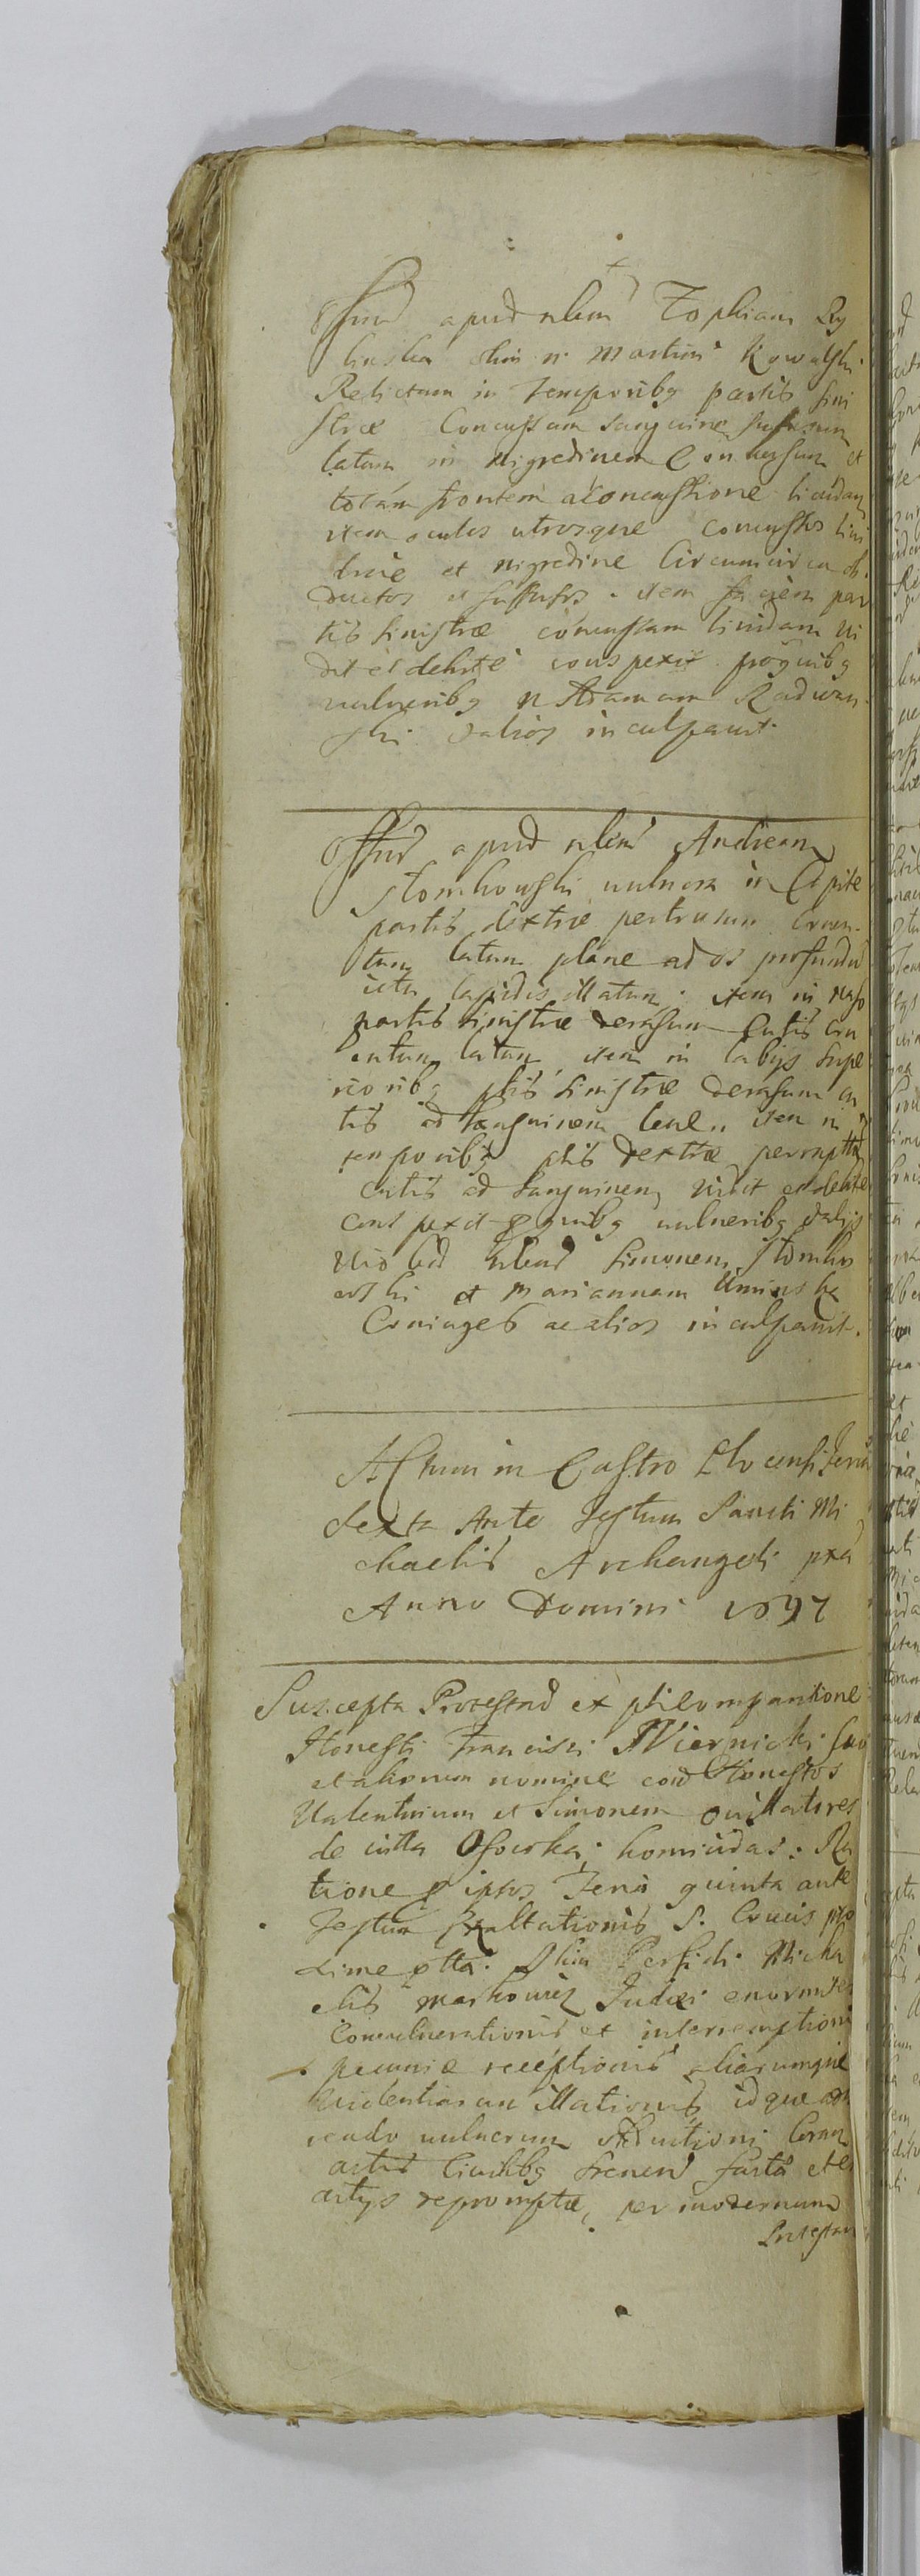 Offtur apud nlem Zophiam Ry
linska olim n. Martini Kowalski
Relictam in temporibq partis sini
strae Concussam sanguine suffusum
latum in nigredinem Conversum et
totam frontem a concussione lividam
item oculos utrosque concussos livi
dine et nigredine Circumcirca ob
ductos et suffusos. item faciem par
tis sinistrae concussam lividam vi
dit et debite conspexit pro quibq
vulneribq n Adamum Radwan
ski et alios inculpavit.
Offtur apud nlem Andream
Stomkowski vulnera in Capite
partis dextrae pertrusum cruen
tum latum plane ad os profundum
ictu lapidis illatum. item in naso
partis sinistrae derasum Cutis cru
entum latum item in labijs supe
rioribq ptis sinistrae derasum cu
tis ad sanguinem leve. item in
temporibq ptis dextrae
cutis ad sanguinem vidit et debite
conspexit p quibq vulneribq
nlem Simonem Stomkow
ski et Mariannam Uminska
Coniuges ac alios inculpavit.
Actum in Castro Plocensi Feria
sexta Ante Festum Sancti Mi
chaelis Archangeli pxa
Anno Domini 1697
Suscepta Protestao ex ptli comparitione
Honesti Francisci Wiernicki suo
et aliorum nomine con Honestos
Valentinum et Simonem
de villa Osowka homicidas: Ra
tione p ipsos Feria quinta ante
Festum Exaltationis S. Crucis pro
xime ptta. Olim Perfidi Micha
elis Markowicz Judaei enormis
Convulnerationis et interemptionis
pecuniae receptionis aliarumque
violentiarum illationis idque
vulnerum obductioni Coram
actis Civilibq Srenen facta et ex
actijs repromptae, per modernum
Protestan